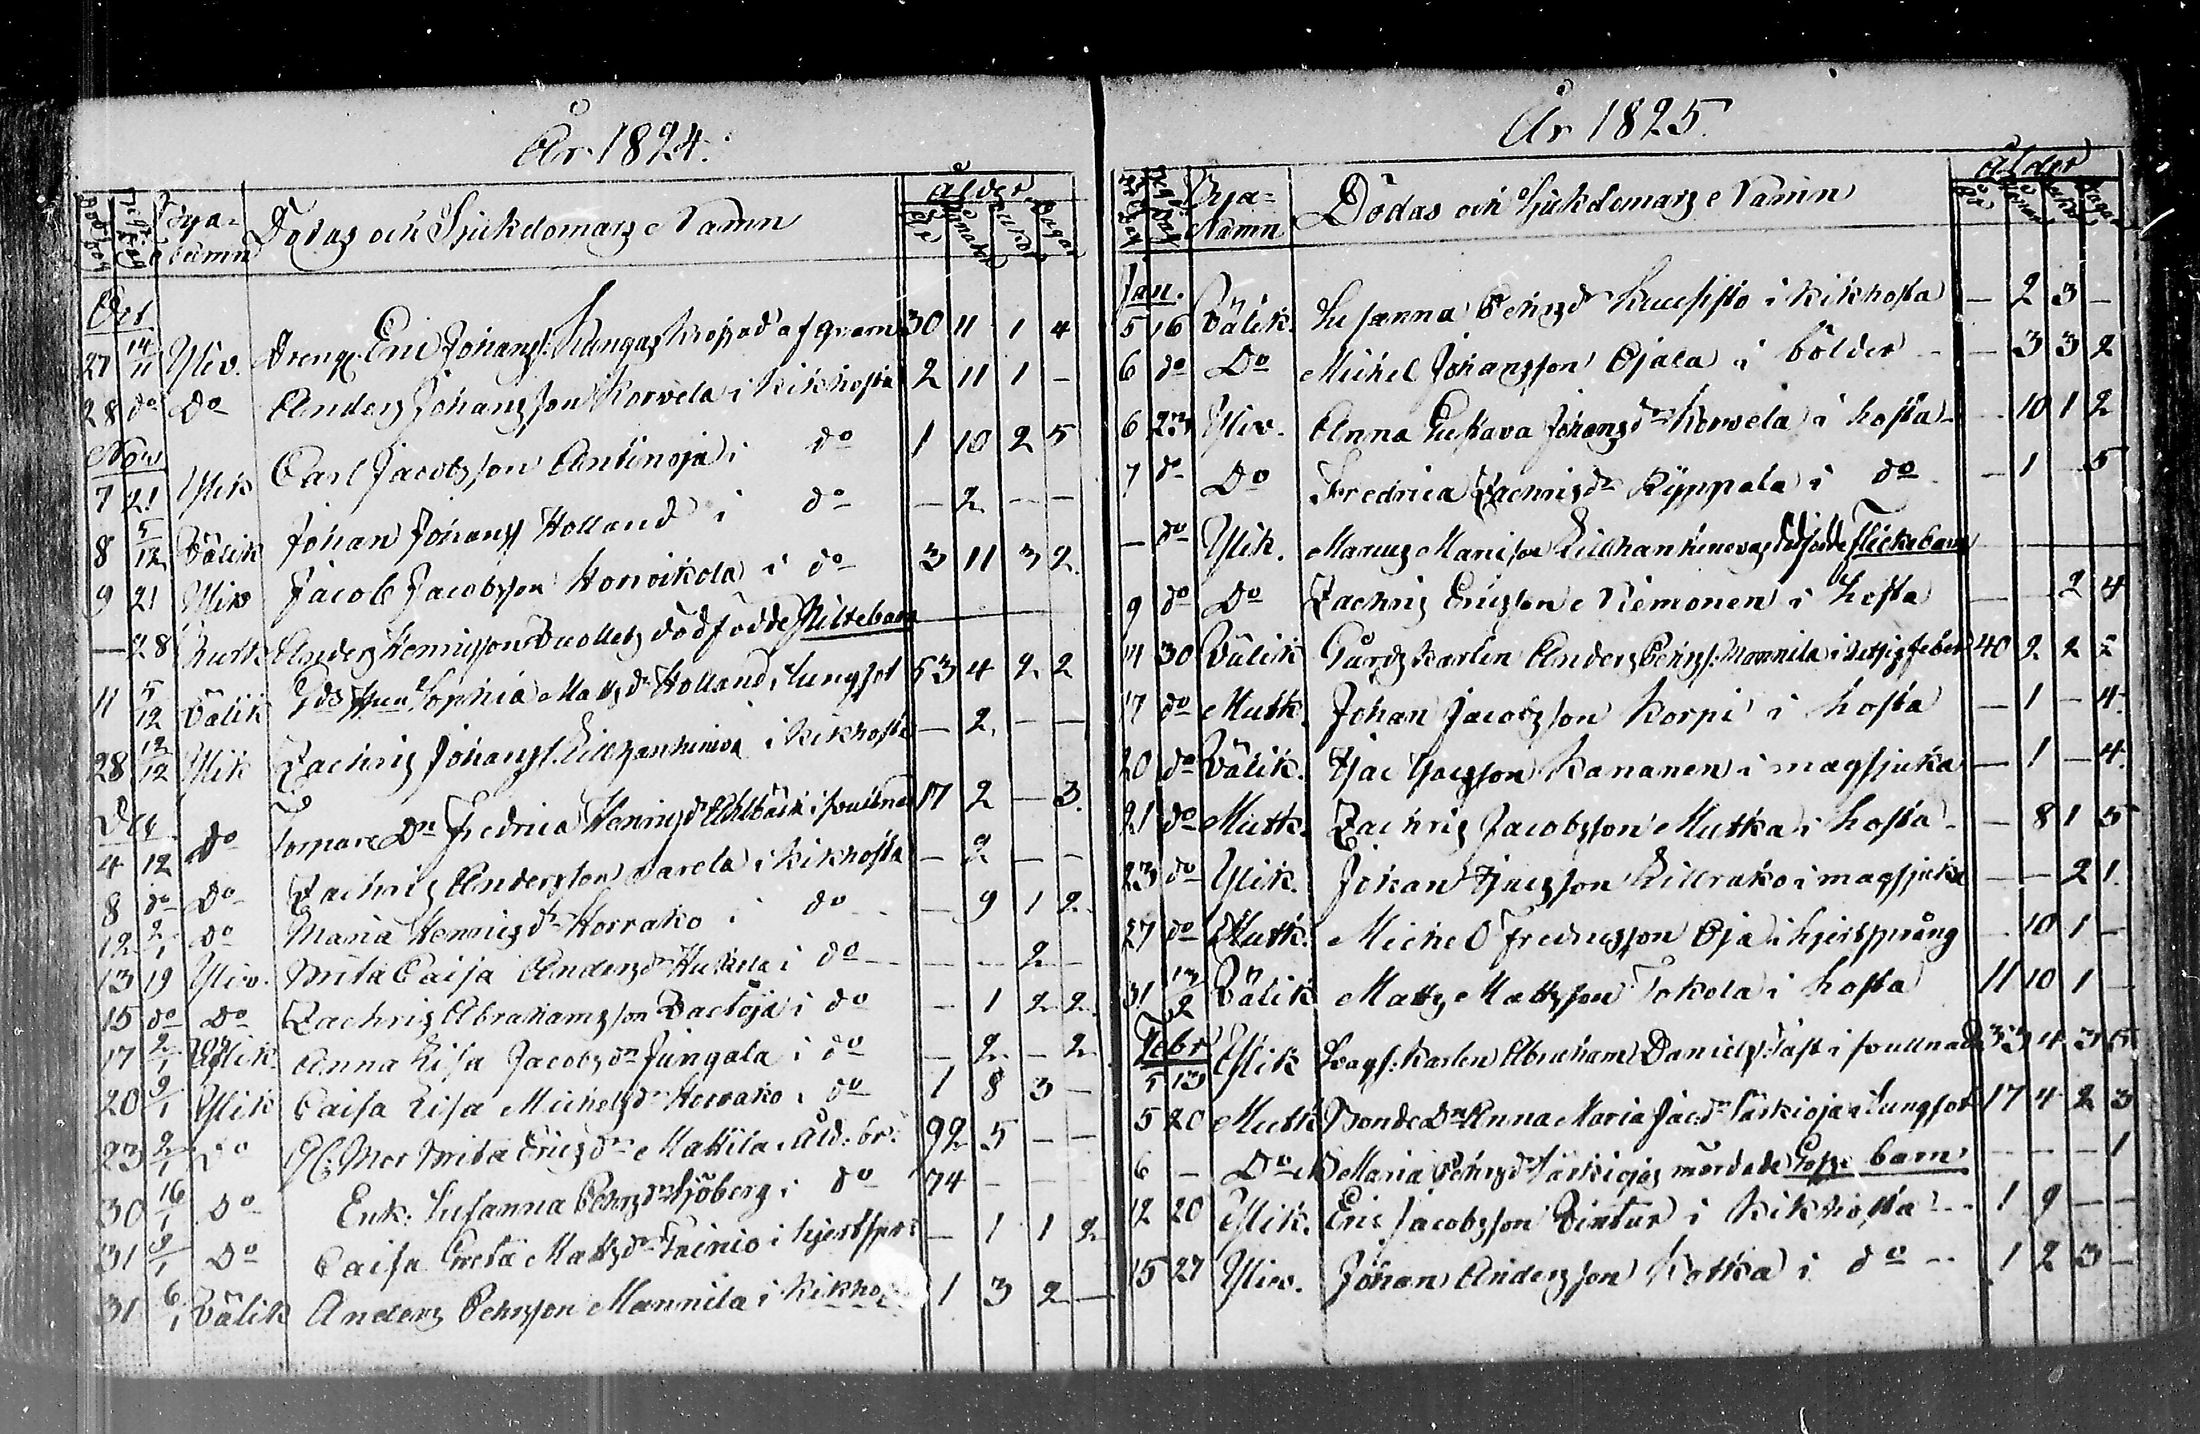 År 1824.
Död. dag Begr. dag Bya-Namn Dödas och Sjukdomars Namn Ålder År Månader Veckor Dagar
Oct
27 14/11 Yliv. Dreng Eric Johanss. Kangas 30 11 1 4
28 do Do Anders Johansson Korvela i Kikhosta 2 11 1 –
Nov
7 21 Ylik Carl Jacobsson Antinoja i do 1 10 2 5
8 5/12 Välik Johan Johanss Holland i do – 2 – –
9 21 Yliv Jacob Jacobsson Horvikola i do 3 11 3 2
– 28 Anders Henricsson dödfödde
11 5/12 Välik Sophia Mattsdr Holland i lungsot 53 4 2 2
28 12/12 Ylik Zachris Johanss. i Kikhosta – 2 – –
Dec
4 12 Do Torpare Dr Fredrica Henricsdr 17 2 – 3
8 do Do Zachris Andersson Sarela i Kikhosta – 2 – –
12 2/1 Do Maria Henricsdr Horrako i do – 9 1 2
13 19 Yliv. Brita Caisa Andersdr Huhtela i do – – 2 –
15 do Do Zachris Abrahamsson i do – 1 2 2
17 2/1 Ylik. Anna Lisa Jacobsdr Jungala i do – 2 – 2
20 9/1 Ylik Caisa Lisa Michelsdr Horrako i do 1 8 3 –
23 2/1 Do Mor Brita Ericsdr Mattila Åld. br: 92 5 – –
30 16/1 Do Enk. Susanna Pehrsdr Sjöberg i do 74 – – –
31 9/1 Do Caisa Greta Mattsdr Tainio i hjertspr: – 1 1 2
31 6/1 Välik Anders Pehrsson Mannila i Kikho 1 3 2 –
År 1825.
Död. dag Begr. dag Bya-Namn Dödas och Sjukdomars Namn Ålder År Månader Veckor Dagar
Jan.
5 16 Välik. Susanna Pehrsdr Kuusisto i Kikhosta – 2 3 –
6 do Do Michel Johansson Ojala i bölder – 3 3 2
6 23 Yliv. Anna Gustava Johansdr Korvela i hosta – 10 1 2
7 do Do Fredrica Zachrisdr Kyppala i do – 1 – 5
– do Ylik. Marcus dödfödde flickebarn
9 do Do Zachris Ericsson Niemonen i hosta – – 2 4
14 30 Välik Gårds karlen Anders Pehrss. Mannila i 40 2 2
17 do Mutk. Johan Jacobsson Korpi i hosta – 1 – 4
20 do Välik. Isac Isacsson Kananen i magsjuka – 1 – 4
21 do Mutk. Zachris Jacobsson Mutka i hosta – 8 1 5
23 do Ylik. Johan Isacsson i magsjuka – – 2 1
27 do Mutk. Michel Fredricsson Oja i hjertsprång – 10 1 –
31 13/2 Välik Matts Mattsson Tokola i hosta 11 10 1 –
Febr
5 13 Ylik karlen Abraham Daniels. 33 4 3 5
5 20 Mutk Bonde Dr Anna Maria Jacdr Särkioja i lungsot 17 4 2 3
6 – Do Maria Pehrsdr Särkiojas mördade barn – – – 1
12 20 Ylik. Eric Jacobsson Vintur i Kikhosta 1 9 – –
15 27 Yliv. Johan Andersson Kotka i do 1 2 3 –